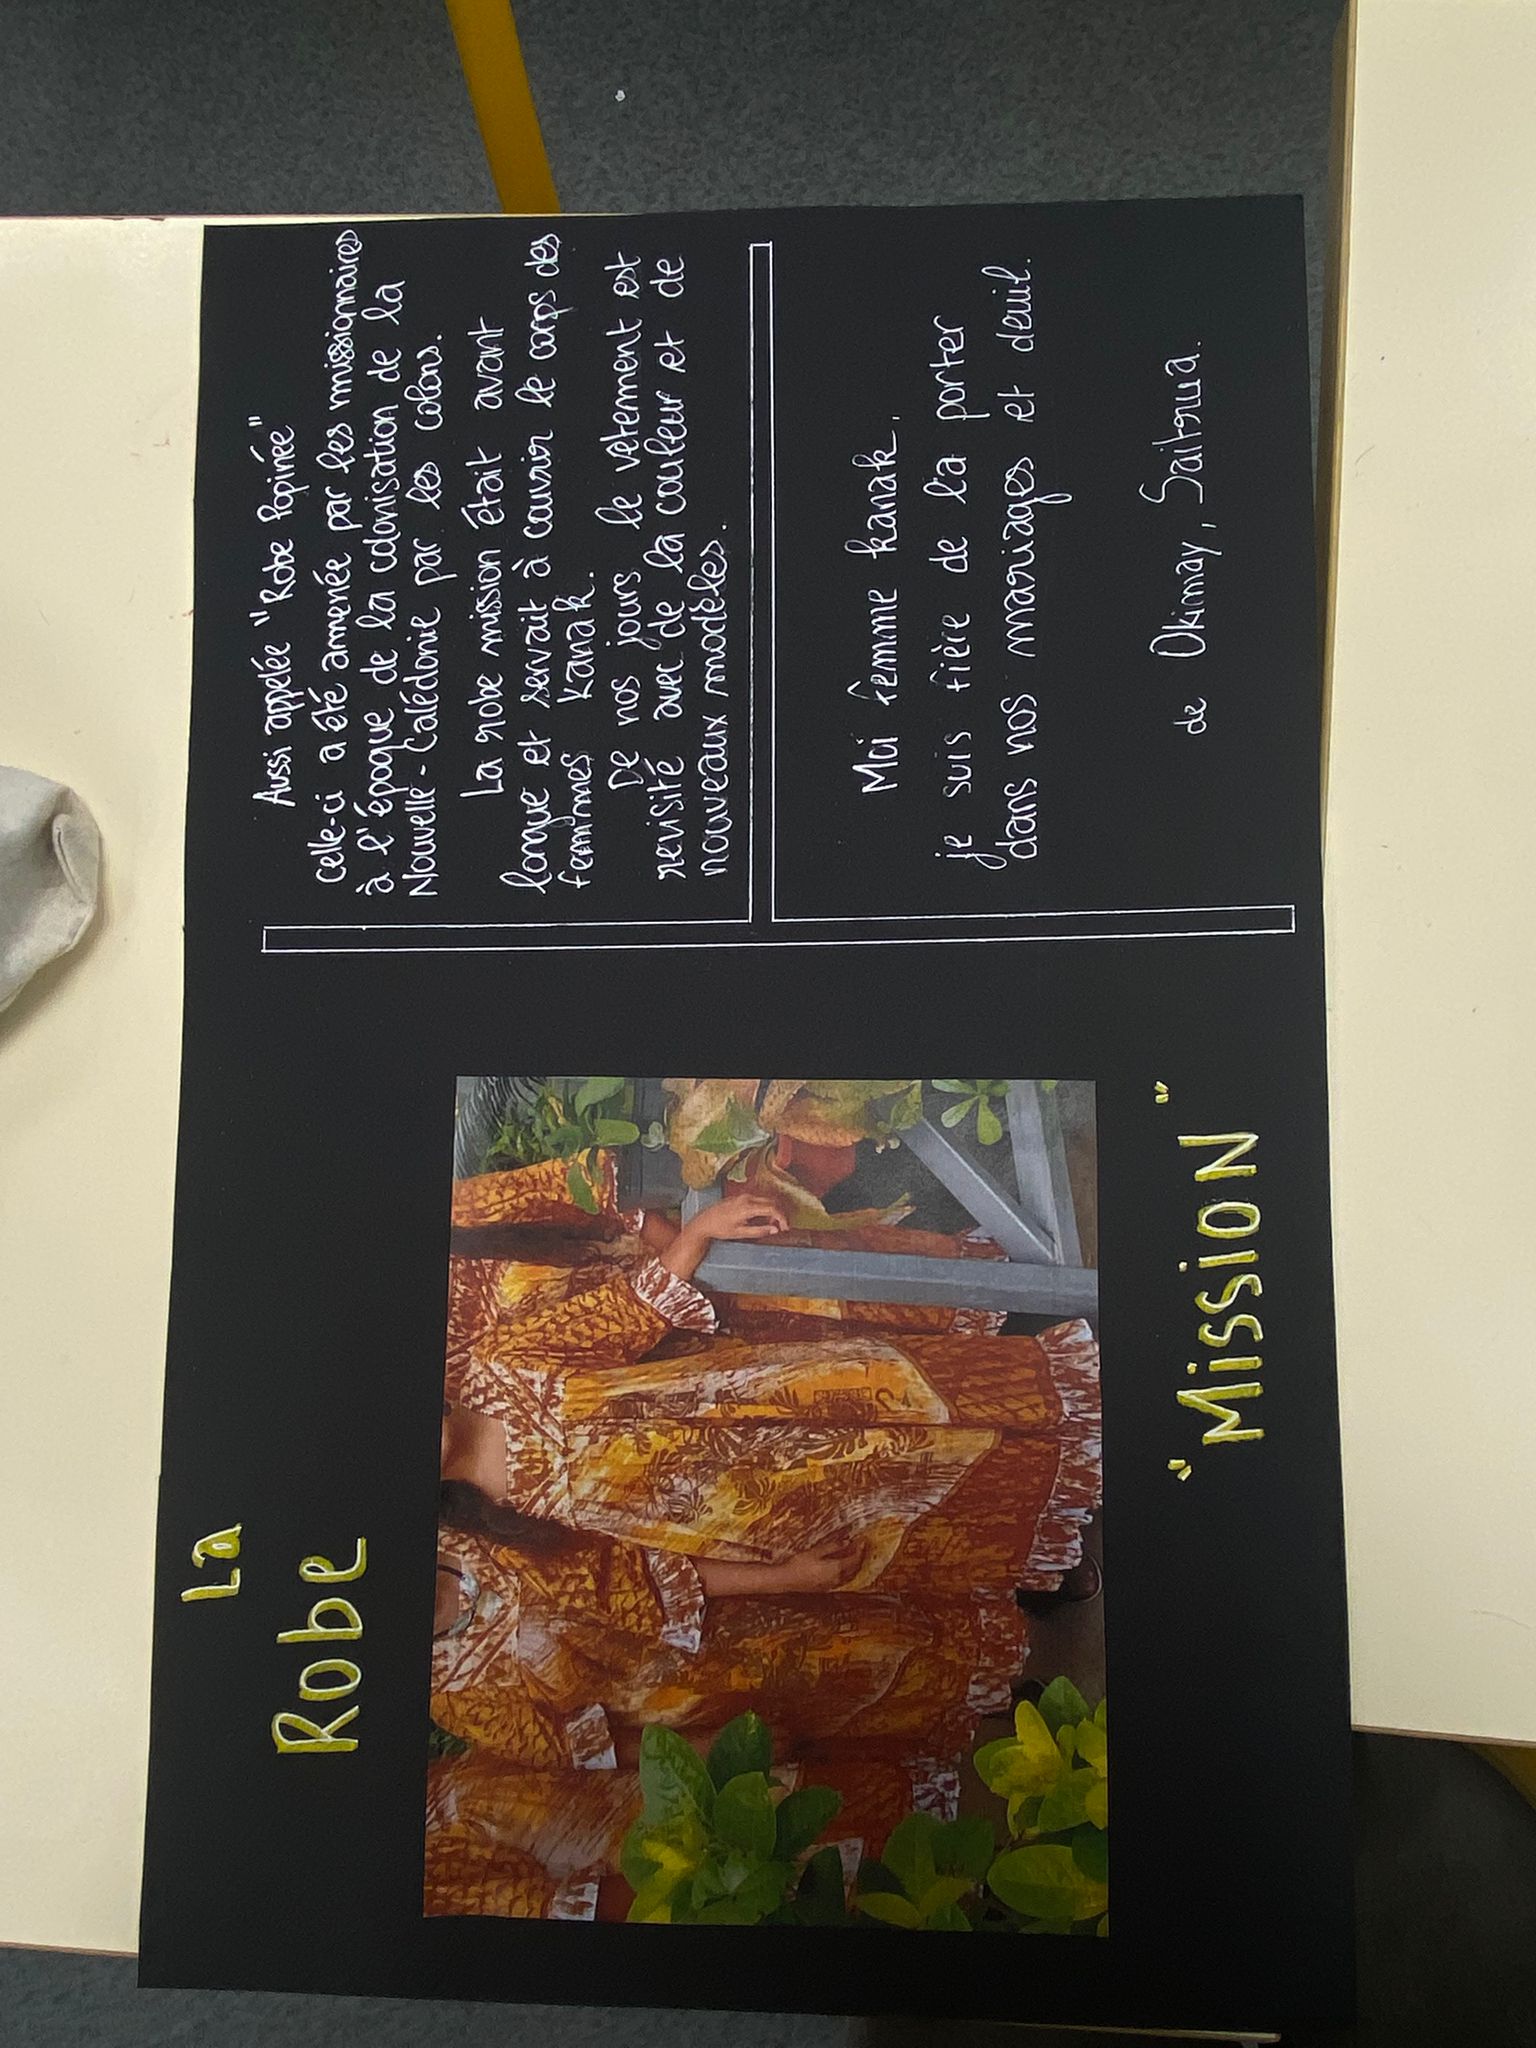 La
Robe
"Mission"
Aussi appelée "Robe Popinée"
celle-ci a été amenée par les missionnaires
à l'époque de la colonisation de la
Nouvelle-Calédonie par les colons.
La robe mission était avant
longue et servait à couvrir le corps des
femmes kanak.
De nos jours le vêtement est
revisité avec de la couleur et de
nouveaux modèles.
Moi femme kanak,
je suis fière de la porter
dans nos mariages et deuil.
de Okimay, Saitrua.